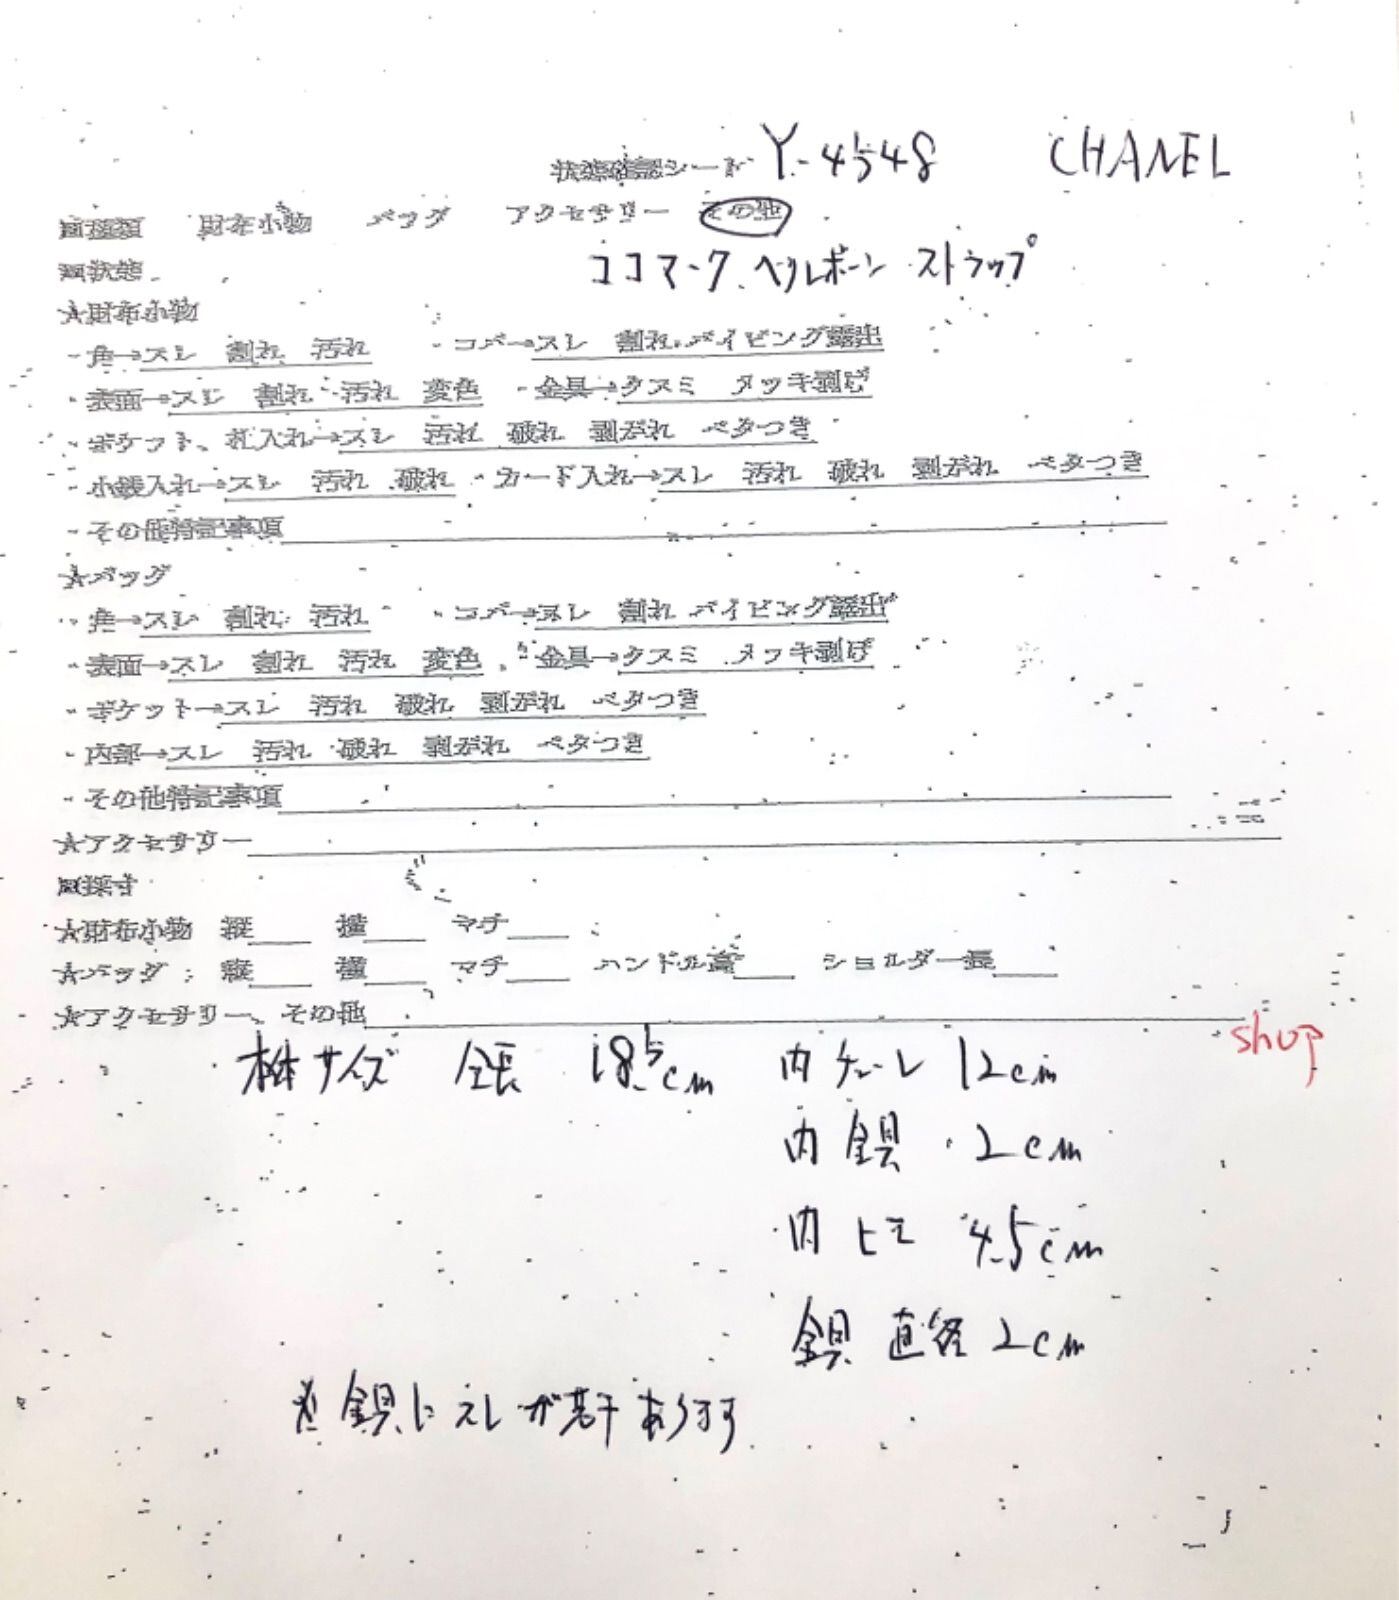 状態確認シート Y-4548 CHANEL
■種類 財布小物 バッグ アクセサリー その他
■状態 ココマーク ヘリンボーン ストラップ
★財布小物
・角→スレ 割れ 汚れ ・コバ→スレ 割れ パイピング露出
・表面→スレ 割れ 汚れ 変色 ・金具→クスミ メッキ剥げ
・ポケット、札入れ→スレ 汚れ 破れ 剥がれ ベタつき
・小銭入れ→スレ 汚れ 破れ ・カード入れ→スレ 汚れ 破れ 剥がれ ベタつき
・その他特記事項
★バッグ
・角→スレ 割れ 汚れ ・コバ→スレ 割れ パイピング露出
・表面→スレ 割れ 汚れ 変色 ・金具→クスミ メッキ剥げ
・ポケット→スレ 汚れ 破れ 剥がれ ベタつき
・内部→スレ 汚れ 破れ 剥がれ ベタつき
・その他特記事項
★アクセサリー
■採寸
★財布小物 縦 横 マチ
★バッグ 縦 横 マチ ハンドル高 ショルダー長
★アクセサリー、その他
shop
サイズ 全長 18.5cm 内 チェーン 12cm
内 金具 2cm
内 ヒモ 4.5cm
金具 直径 2cm
※金具にスレが若干あります